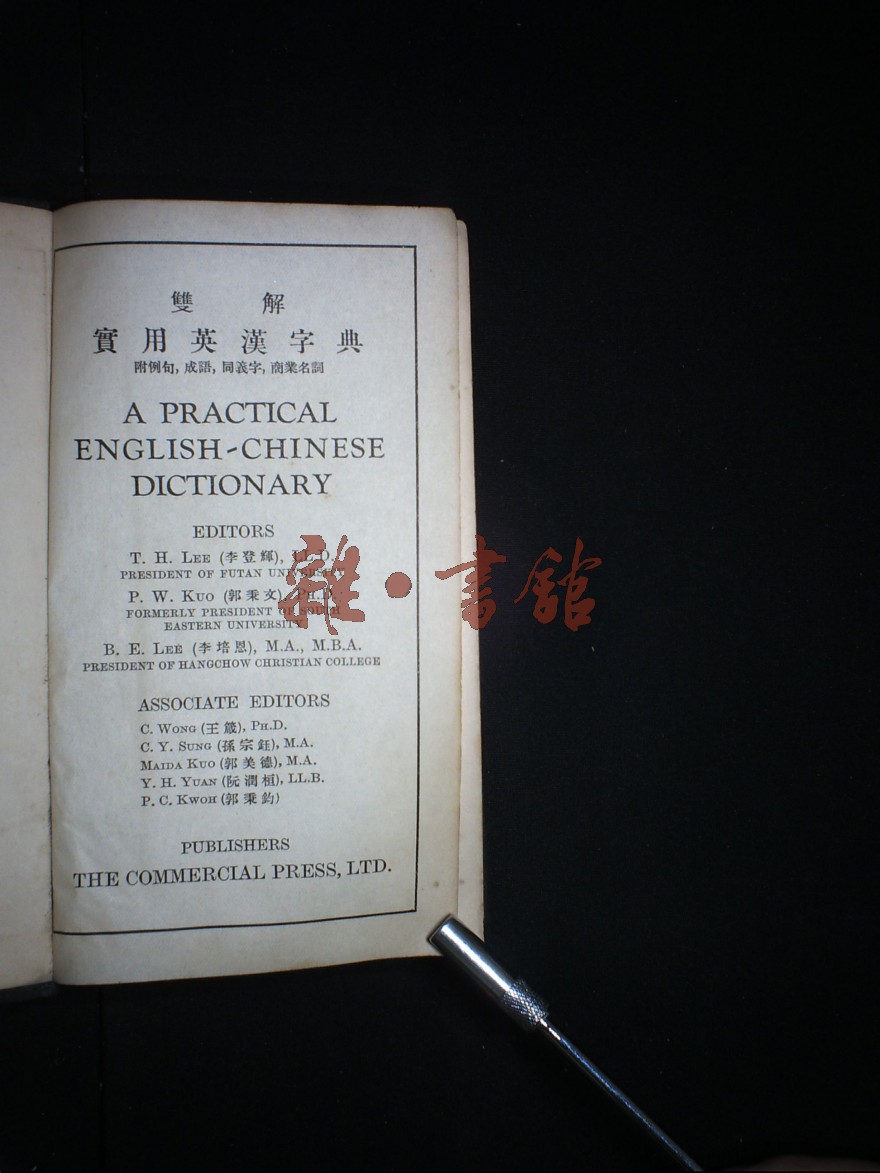 雙解
實用英漢字典
附例句,成語,同義字,商業名詞
A PRACTICAL
ENGLISH-CHINESE
DICTIONARY
EDITORS
T. H. LEE (李登輝), LL.D.
PRESIDENT OF FUTAN UNIVERSITY
P. W. KUO (郭秉文), PH.D.
FORMERLY PRESIDENT OF SOUTH
EASTERN UNIVERSITY
B. E. LEE (李培恩), M.A., M.B.A.
PRESIDENT OF HANGCHOW CHRISTIAN COLLEGE
ASSOCIATE EDITORS
C. WONG (王箴), PH.D.
C. Y. SUNG (孫宗鈺), M.A.
MAIDA KUO (郭美德), M.A.
Y. H. YUAN (阮潤桓), LL.B.
P. C. KWOH (郭秉鈞)
PUBLISHERS
THE COMMERCIAL PRESS, LTD.
雜·書館